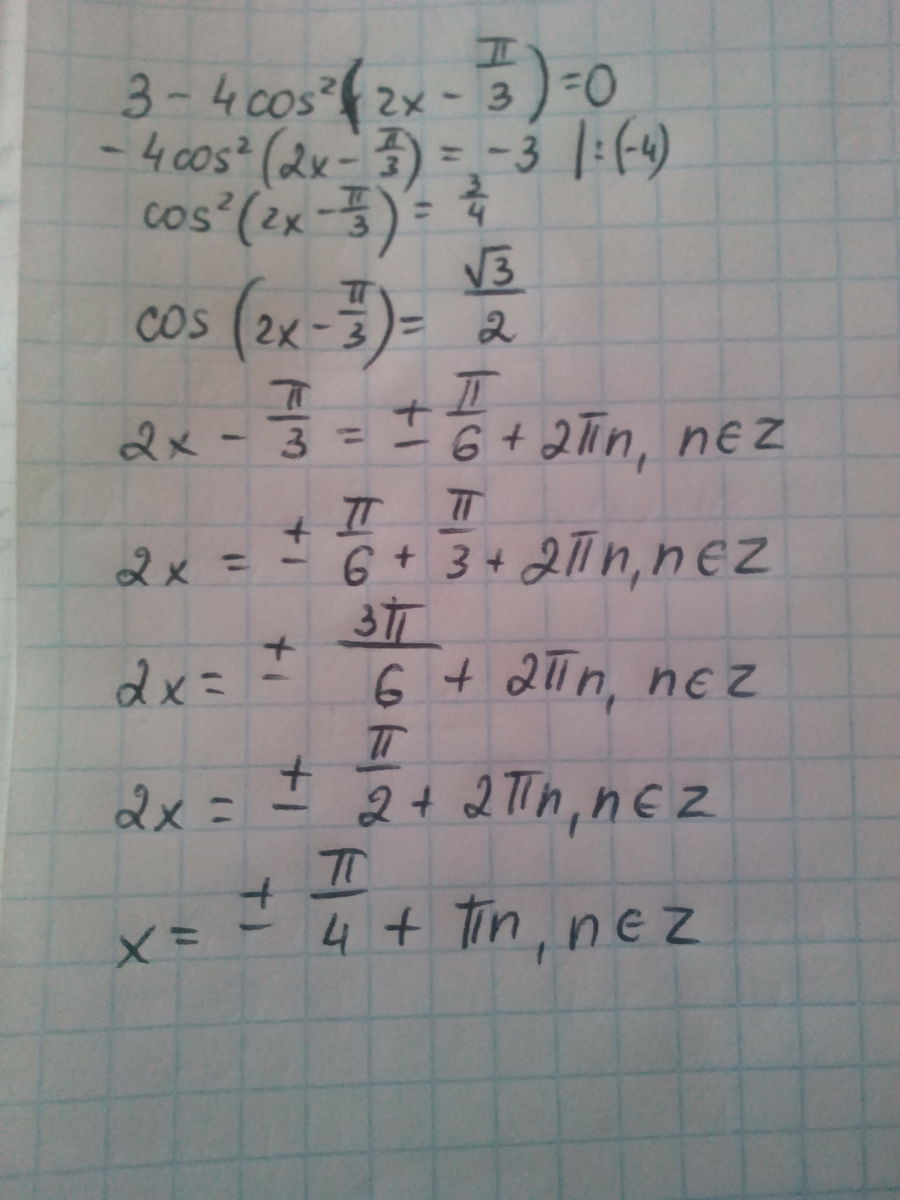 3 - 4cos²(2x - π/3) = 0
- 4cos²(2x - π/3) = -3 |:(-4)
cos²(2x - π/3) = 3/4
cos (2x - π/3) = √3/2
2x - π/3 = ± π/6 + 2πn, n∈Z
2x = ± π/6 + π/3 + 2πn, n∈Z
2x = ± 3π/6 + 2πn, n∈Z
2x = ± π/2 + 2πn, n∈Z
x = ± π/4 + πn, n∈Z